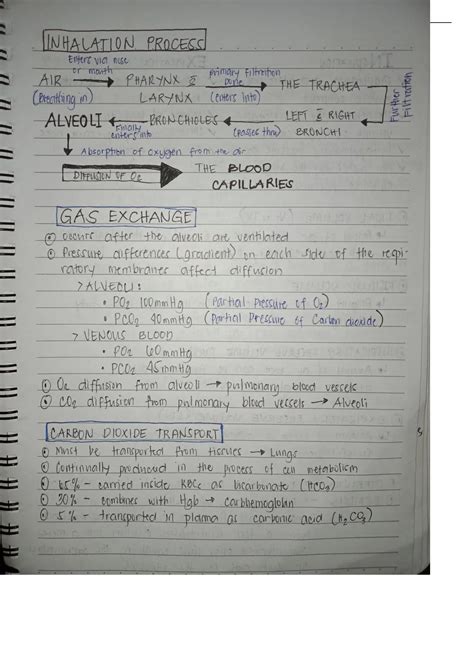 INHALATION PROCESS
Enters via nose
or mouth
AIR → PHARYNX &
LARYNX
(Breathing in)
primary Filtration
(enters into)
THE TRACHEA
Further
Filtration
LEFT & RIGHT
BRONCHI
(passes thru)
BRONCHIOLES
Finally
enters into
ALVEOLI
Absorption of oxygen from the air
DIFFUSION OF O2
THE BLOOD
CAPILLARIES
GAS EXCHANGE
occurs after the alveoli are ventilated
Pressure differences (gradient) on each side of the respi-
ratory membranes affect diffusion
> ALVEOLI:
• PO2 100mmHg (Partial Pressure of O2)
• PCO2 40mmHg (Partial Pressure of Carbon dioxide)
> VENOUS BLOOD
• PO2 60mmHg
• PCO2 45mmHg
O2 diffusion from alveoli → pulmonary blood vessels
CO2 diffusion from pulmonary blood vessels → Alveoli
CARBON DIOXIDE TRANSPORT
Must be transported from tissues → Lungs
Continually produced in the process of cell metabolism
65% - carried inside RBCs as bicarbonate (HCO3)
30% - combines with Hgb → carbhemoglobin
5% - transported in plasma as carbonic acid (H2CO3)